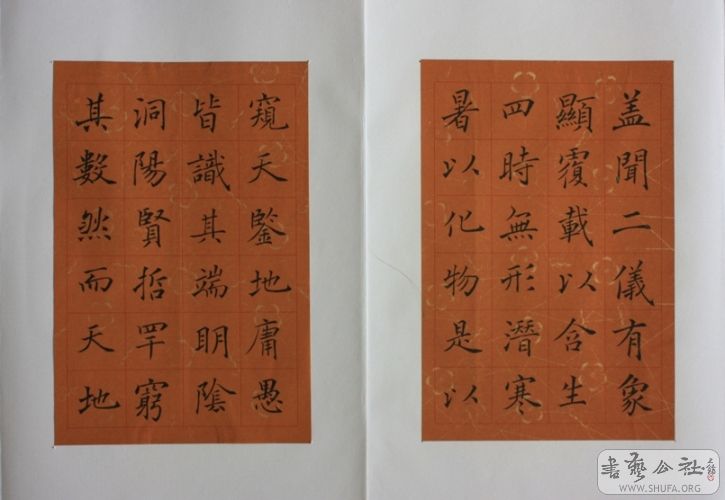 盖聞二儀有象
顯覆載以含生
四時無形潛寒
暑以化物是以
窺天鑒地庸愚
皆識其端明陰
洞陽賢哲罕窮
其數然而天地
書藝公社
WWW.SHUFA.ORG